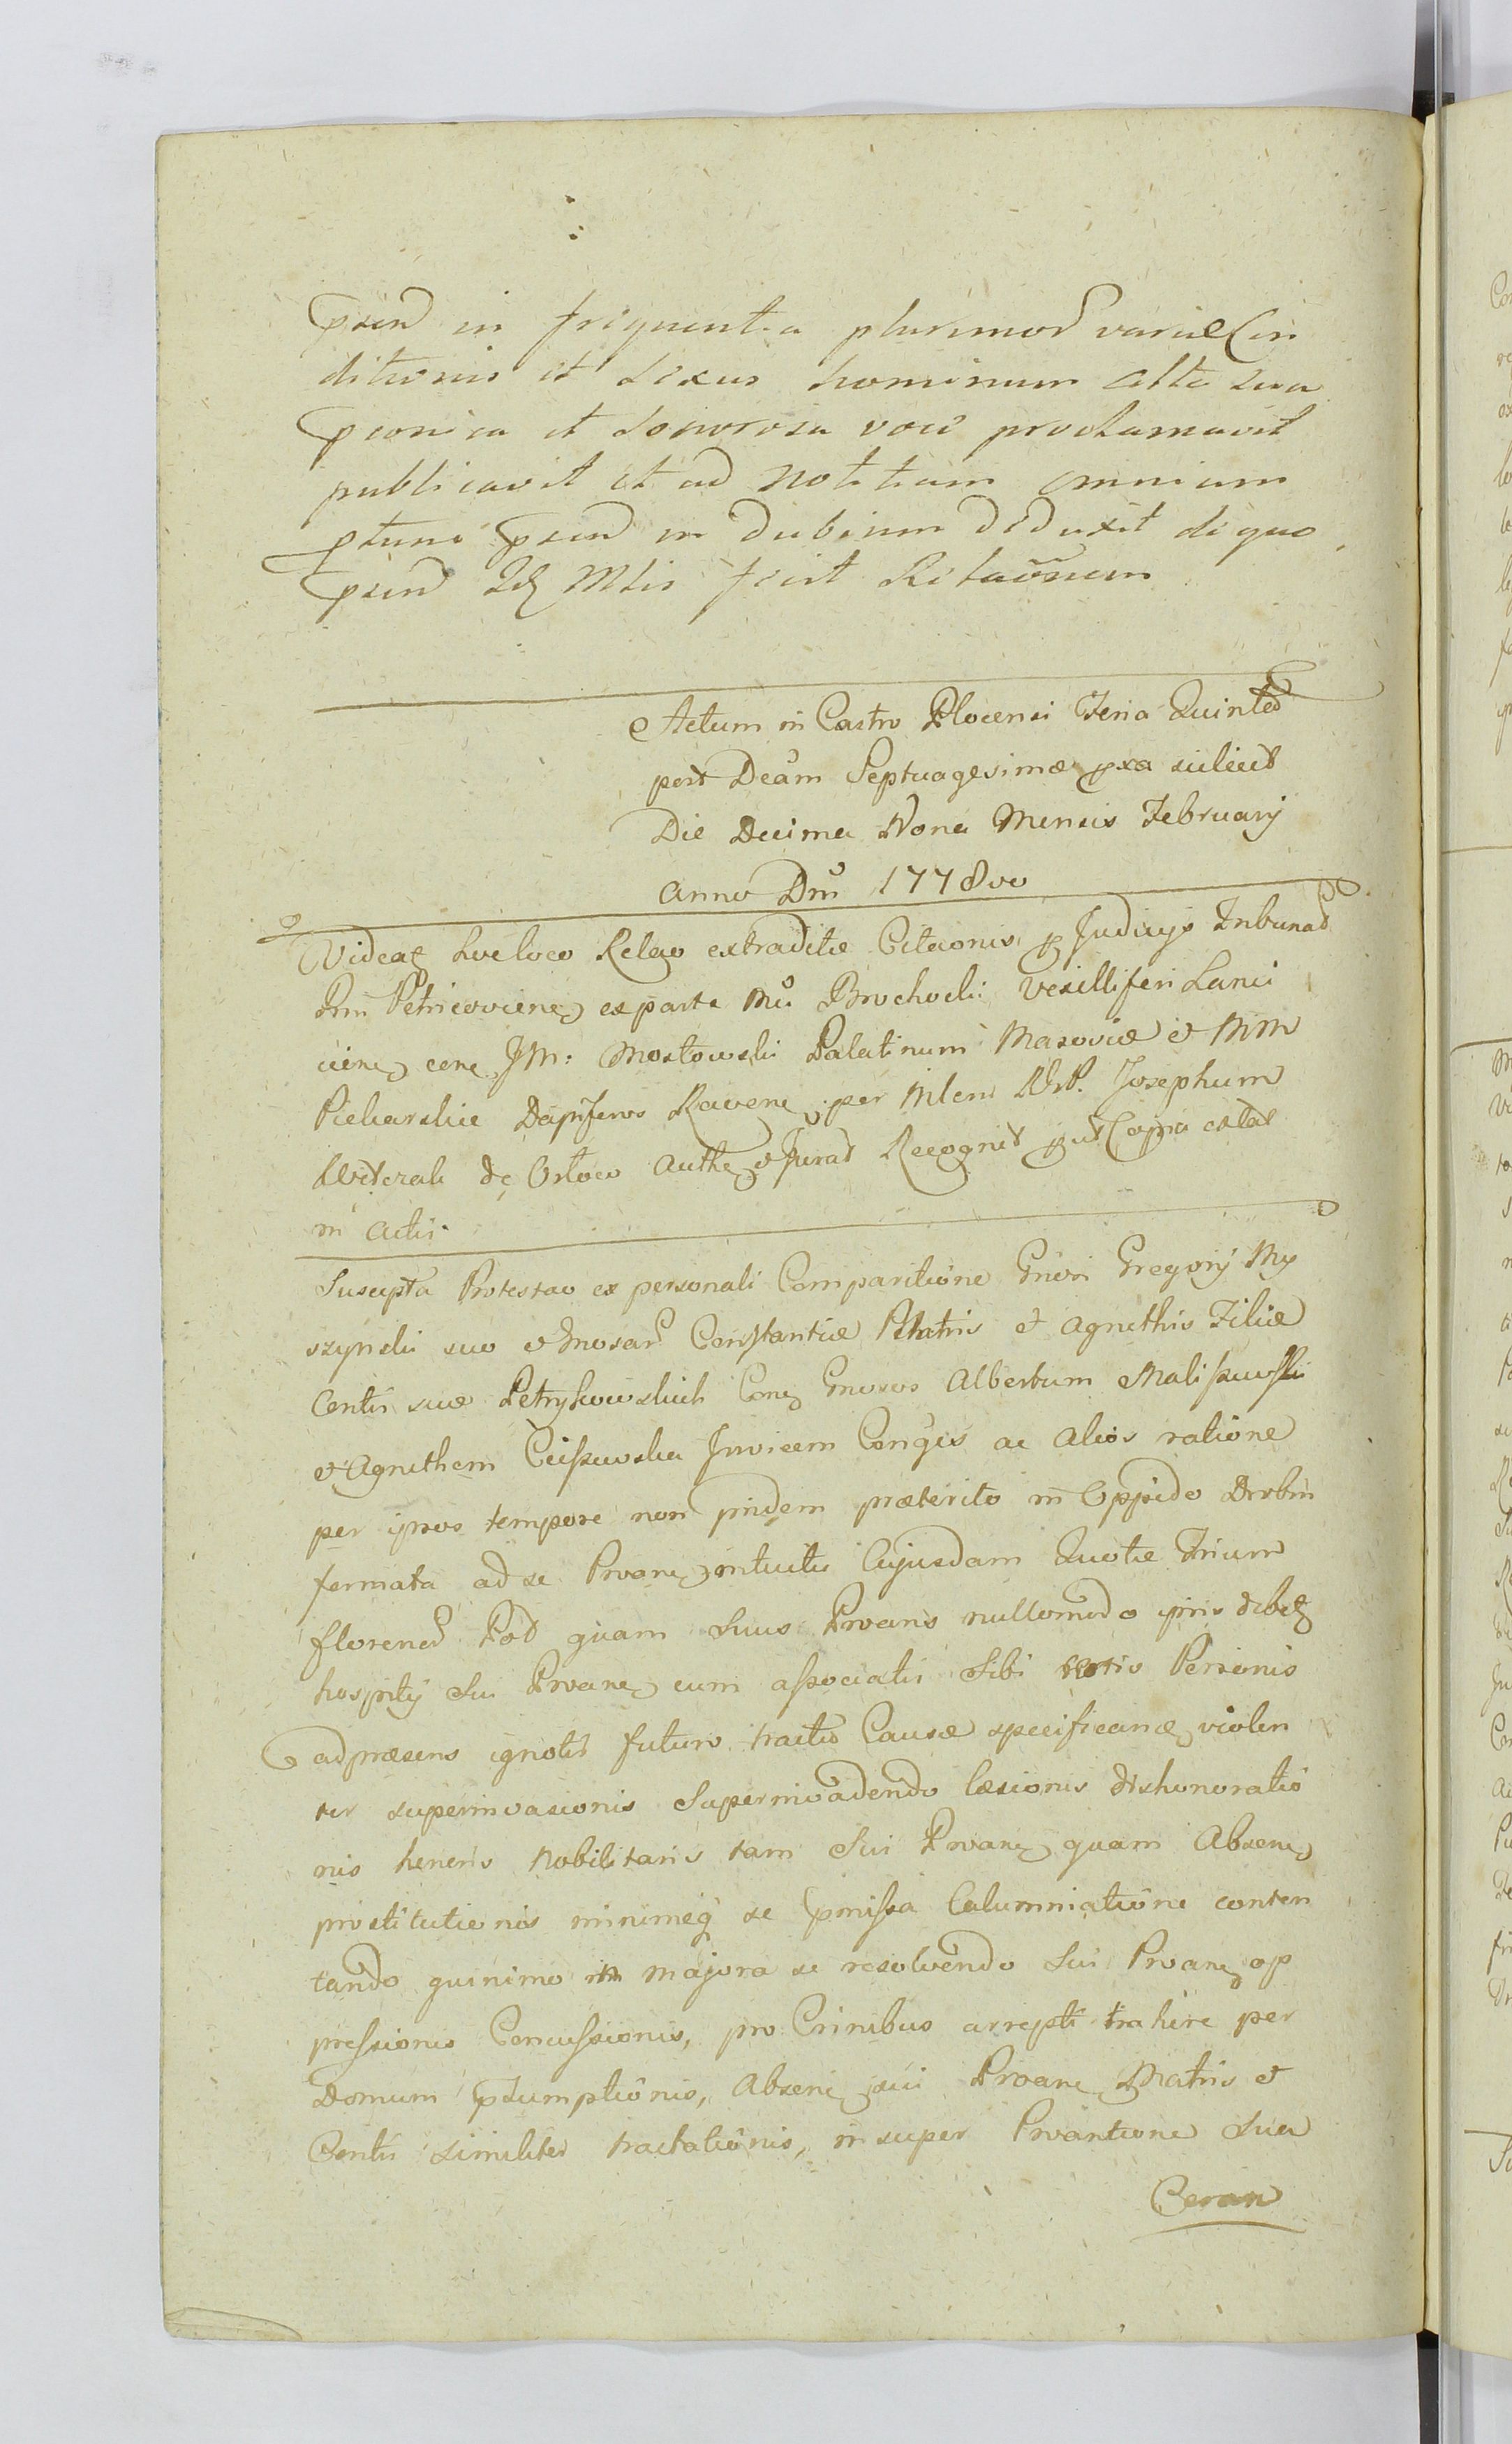 psens in frequentia plurimor variæ Con
ditionis et Sexus hominum alta sua
pconica et Sonorosa voce proclamavit
publicavit et ad Notitiam omnium
ptune psens in dubium deduxit de quo
psens Idq Mtis fecit Relaõnem
Actum in Castro Plocensi Feria Quinta
post Dcam Septuagesimæ pxa scilicet
Die Decima Nona Mensis February
Anno Dni 1778vo
Videaq hoc loco Relao extraditæ Citaonis p Judicijs Tribunal
Rni Petricoviens ex parte Mci Brochocki Vexilliferi Lanci
ciens cone JM: Mostowski Palatinum Masoviæ et MM
Piekarskie Dapiferos Ravens per Mlem Rst. Josephum
de Osloco Authe et Jurat Recognit put Copia extat
in Actis.
Suscepta Protestao ex personali Comparitione Gnosi Gregorij My
szynski suo et Gnosar Constantiæ Matris et Agnethis Filiæ
Centis suæ Petrykowskich Cone Gnosos Albertum Maliszewski
et Agnethem Ciszewska Invicem Conges ac Alios ratione
per ipsos tempore non pridem præterito in Oppido Drobin
formata ad se Proane intuitu Cujusdam Quotæ Trium
florenor Pol quam Suus Proans nullomodo ipsis debet
hospitij Sui Proane cum associatis Sibi certis Personis
ad præsens ignotis futuro tractu Causæ specificanæ violen
ter superinvasionis Superinvadendo læsionis dishonoratio
nis heneris Nobilitaris tam Sui Proane quam Absens
prostitutionis minimeq se pmissa Calumniatione conten
tando quinimo in majora se resolvendo Sui Proane op
pressionis Concussionis, pro Crinibus arrepti trahere per
Domum psumptionis, Absens sui Proane Matris et
Centis similiter tractationis, insuper Proantione sua
Coran